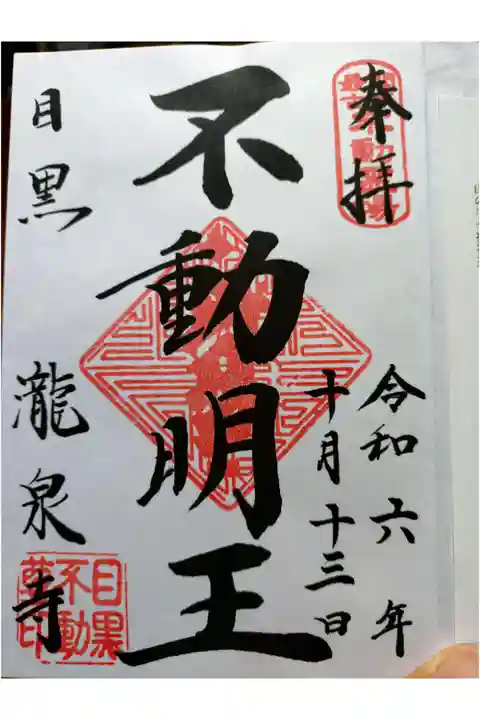 奉拝
令和六年
十月十三日
不動明王
目黒 瀧泉寺
目黒
不動
尊印